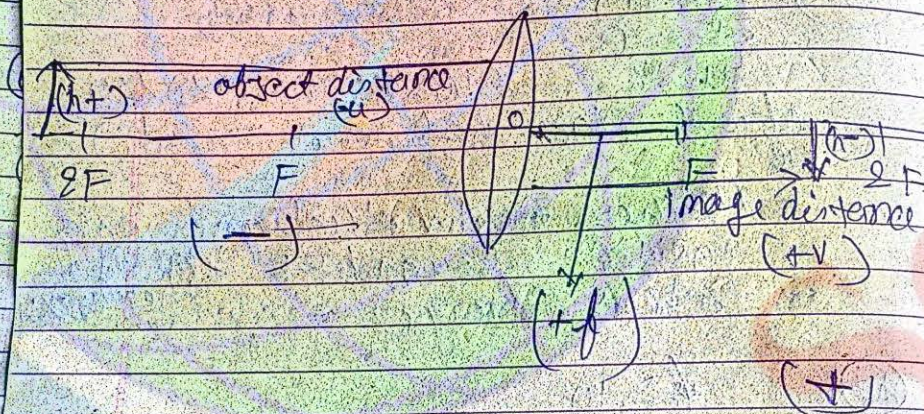 (h+) object distance
(-u)
O
(h-)
2F F F 2F
image distance
(-) (+v)
(+f)
(+)